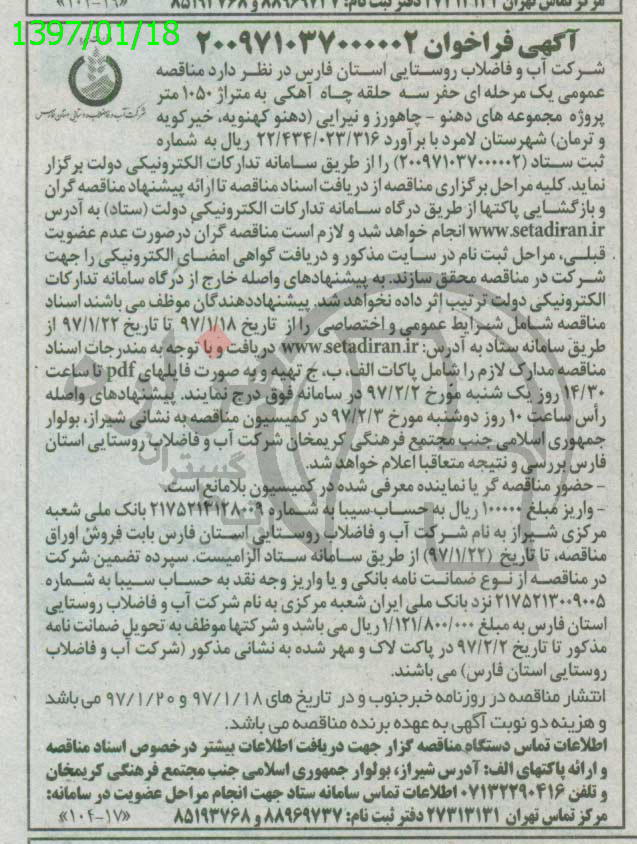 مرکز تماس تهران ۲۷۳۱۳۱۳۱ دفتر ثبت نام: ۸۸۹۶۹۷۳۷ و ۸۵۱۹۳۷۶۸ «۱۶-۱۰۴»
1397/01/18
آگهی فراخوان ۲۰۰۹۷۱۰۳۷۰۰۰۰۰۲
شرکت آب و فاضلاب روستایی استان فارس در نظر دارد مناقصه
عمومی یک مرحله ای حفر سه حلقه چاه آهکی به متراژ ۱۰۵۰ متر
شرکت آب و فاضلاب روستایی استان فارس
پروژه مجموعه های دهنو - چاهورز و نیرایی (دهنو کهنویه، خیرکویه
و ترمان) شهرستان لامرد با برآورد ۲۲/۴۳۴/۰۲۳/۳۱۶ ریال به شماره
ثبت ستاد (۲۰۰۹۷۱۰۳۷۰۰۰۰۰۲) را از طریق سامانه تدارکات الکترونیکی دولت برگزار
نماید. کلیه مراحل برگزاری مناقصه از دریافت اسناد مناقصه تا ارائه پیشنهاد مناقصه گران
و بازگشایی پاکتها از طریق درگاه سامانه تدارکات الکترونیکی دولت (ستاد) به آدرس
www.setadiran.ir انجام خواهد شد و لازم است مناقصه گران درصورت عدم عضویت
قبلی، مراحل ثبت نام در سایت مذکور و دریافت گواهی امضای الکترونیکی را جهت
شرکت در مناقصه محقق سازند. به پیشنهادهای واصله خارج از درگاه سامانه تدارکات
الکترونیکی دولت ترتیب اثر داده نخواهد شد. پیشنهاددهندگان موظف می باشند اسناد
مناقصه شامل شرایط عمومی و اختصاصی را از تاریخ ۹۷/۱/۱۸ تا تاریخ ۹۷/۱/۲۲ از
طریق سامانه ستاد به آدرس: www.setadiran.ir دریافت و با توجه به مندرجات اسناد
مناقصه مدارک لازم را شامل پاکات الف، ب، ج تهیه و به صورت فایلهای pdf تا ساعت
۱۴/۳۰ روز یک شنبه مورخ ۹۷/۲/۲ در سامانه فوق درج نمایند. پیشنهادهای واصله
رأس ساعت ۱۰ روز دوشنبه مورخ ۹۷/۲/۳ در کمیسیون مناقصه به نشانی شیراز، بولوار
جمهوری اسلامی جنب مجتمع فرهنگی کریمخان شرکت آب و فاضلاب روستایی استان
فارس بررسی و نتیجه متعاقبا اعلام خواهد شد.
- حضور مناقصه گر یا نماینده معرفی شده در کمیسیون بلامانع است.
- واریز مبلغ ۱۰۰۰۰۰ ریال به حساب سیبا به شماره ۲۱۷۵۲۱۴۱۲۸۰۰۹ بانک ملی شعبه
مرکزی شیراز به نام شرکت آب و فاضلاب روستایی استان فارس بابت فروش اوراق
مناقصه، تا تاریخ (۹۷/۱/۲۲) از طریق سامانه ستاد الزامیست. سپرده تضمین شرکت
در مناقصه از نوع ضمانت نامه بانکی و یا واریز وجه نقد به حساب سیبا به شماره
۲۱۷۵۲۱۳۰۰۹۰۰۵ نزد بانک ملی ایران شعبه مرکزی به نام شرکت آب و فاضلاب روستایی
استان فارس به مبلغ ۱/۱۲۱/۸۰۰/۰۰۰ ریال می باشد و شرکتها موظف به تحویل ضمانت نامه
مذکور تا تاریخ ۹۷/۲/۲ در پاکت لاک و مهر شده به نشانی مذکور (شرکت آب و فاضلاب
روستایی استان فارس) می باشند.
انتشار مناقصه در روزنامه خبرجنوب و در تاریخ های ۹۷/۱/۱۸ و ۹۷/۱/۲۰ می باشد
و هزینه دو نوبت آگهی به عهده برنده مناقصه می باشد.
اطلاعات تماس دستگاه مناقصه گزار جهت دریافت اطلاعات بیشتر درخصوص اسناد مناقصه
و ارائه پاکتهای الف: آدرس شیراز، بولوار جمهوری اسلامی جنب مجتمع فرهنگی کریمخان
و تلفن ۰۷۱۳۲۲۹۰۴۱۶ اطلاعات تماس سامانه ستاد جهت انجام مراحل عضویت در سامانه:
مرکز تماس تهران ۲۷۳۱۳۱۳۱ دفتر ثبت نام: ۸۸۹۶۹۷۳۷ و ۸۵۱۹۳۷۶۸ «۱۷-۱۰۴»